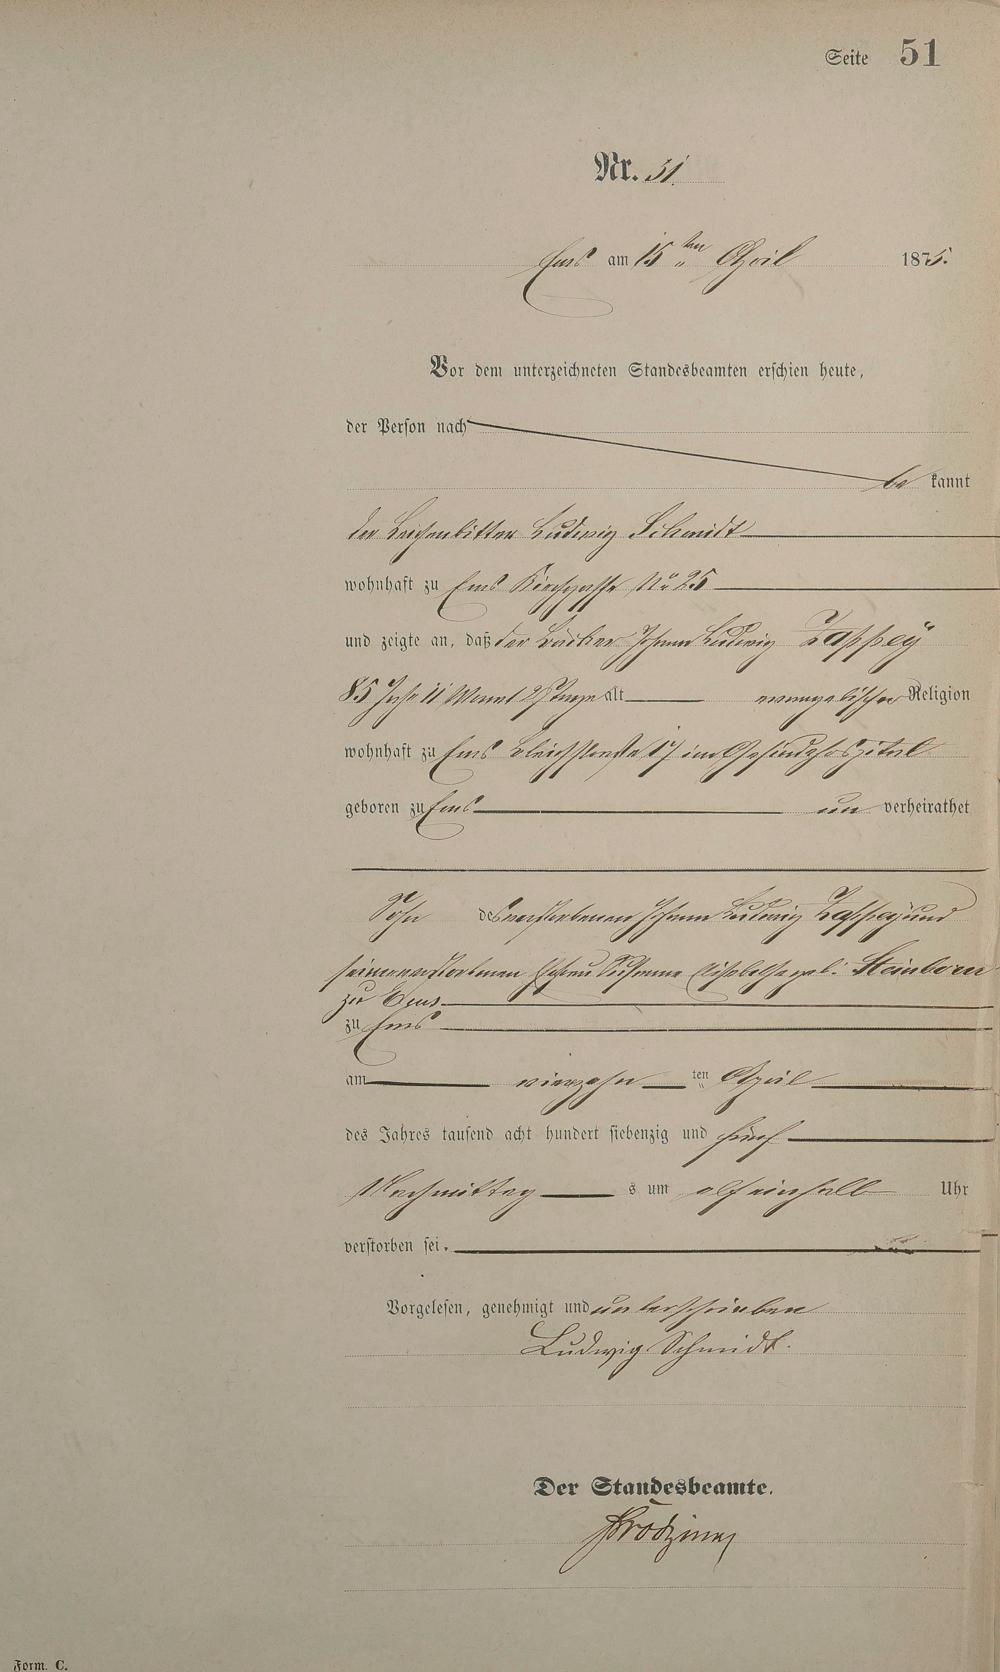 Seite 51
Nr. 51.
Ems am 15ten April 1875.
Vor dem unterzeichneten Standesbeamten erschien heute,
der Person nach
be kannt
der Leichenbitter Ludwig Schmidt
wohnhaft zu Ems Kirchgasse No 25
und zeigte an, daß der Bäcker Johann Ludwig Zappey
85 Jahr 11 Monat Tage alt evangelischer Religion
wohnhaft zu Ems Bleichstraße 17 im
geboren zu Ems un verheirathet
Sohn des verstorbenen Johann Ludwig Zappey und
seiner verstorbenen Ehefrau Susanna Elisabetha geb: Steinborn
zu Ems
zu Ems
am vierzehn ten April
des Jahres tausend acht hundert siebenzig und fünf
Nachmittag s um elf einhalb Uhr
verstorben sei.
Vorgelesen, genehmigt und unterschrieben
Ludwig Schmidt.
Der Standesbeamte.
Form. C.